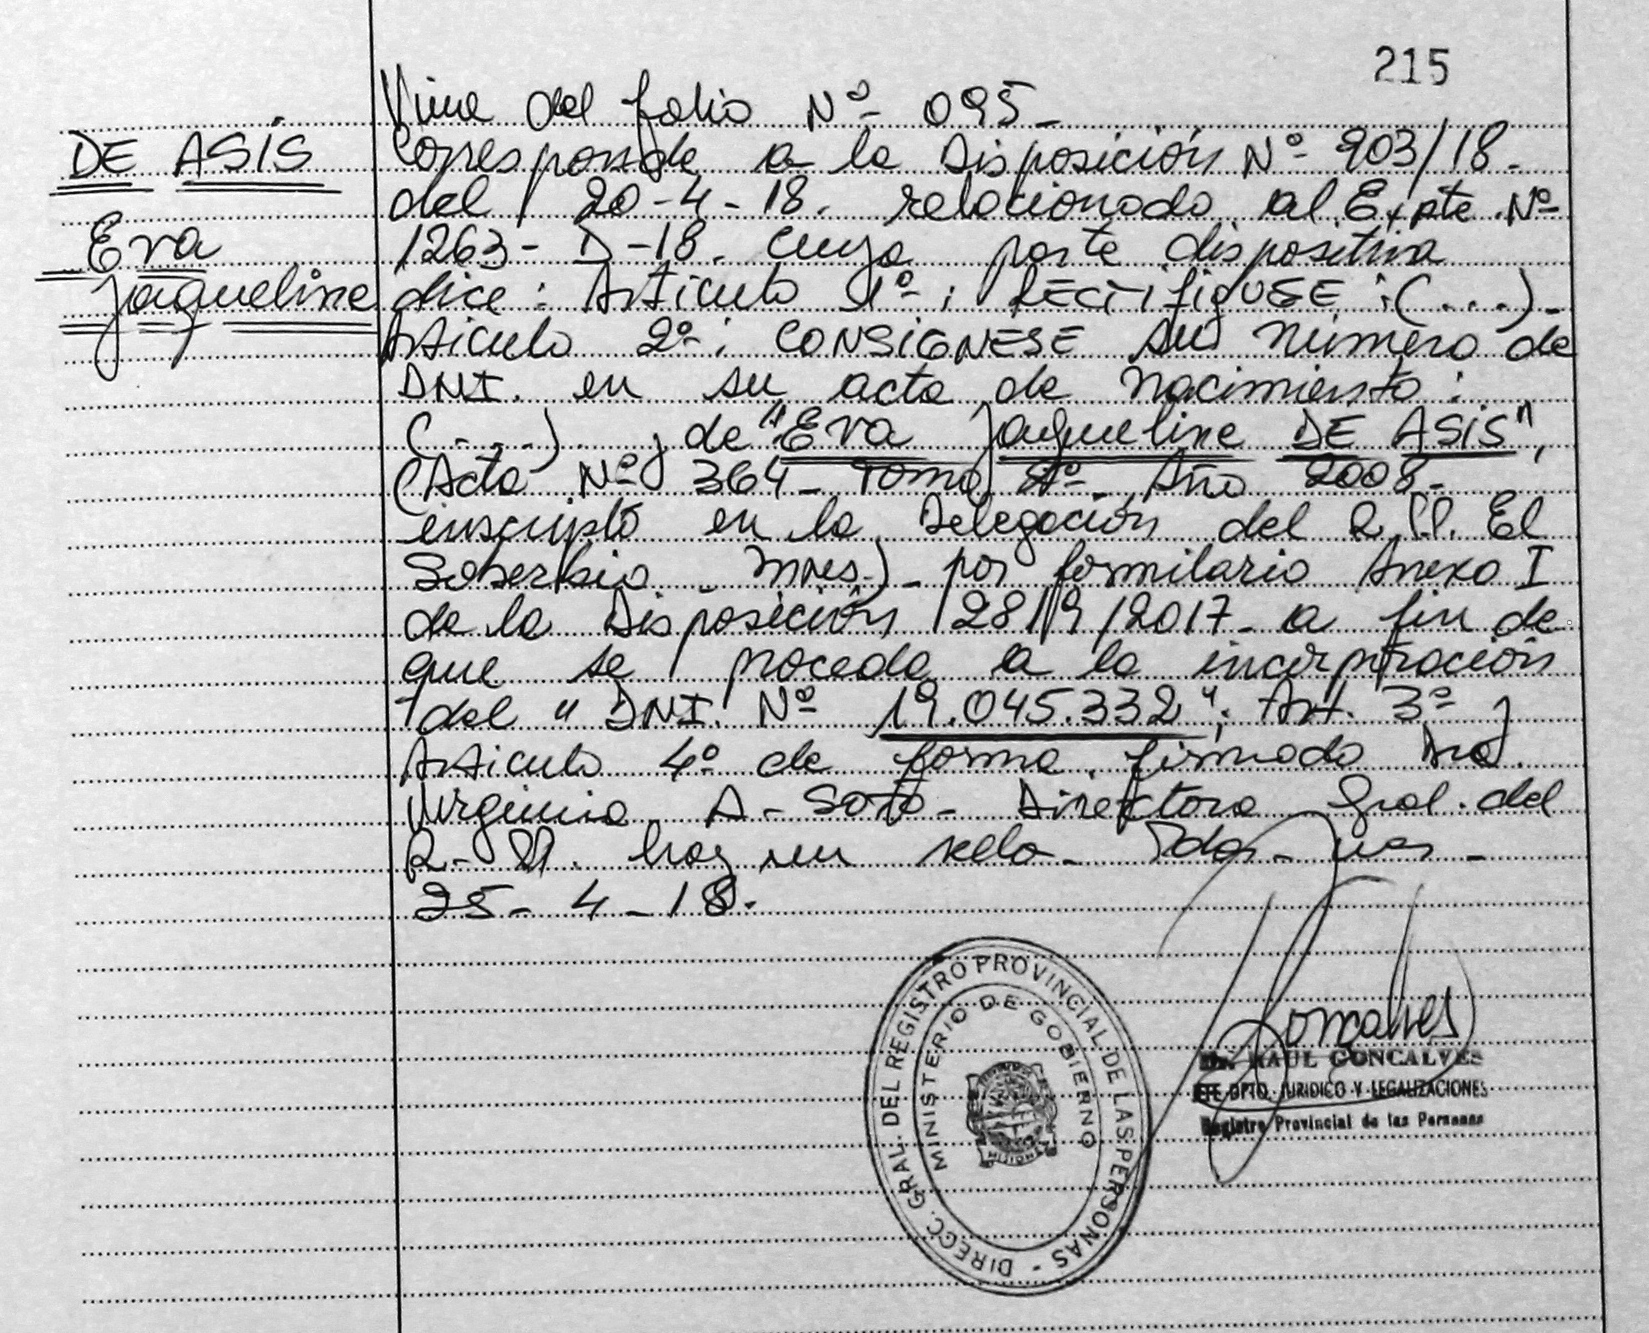 215
DE ASÍS
Eva
Jaqueline
Viene del folio Nº 095-
Corresponde a la Disposición Nº 903/18-
del 20-4-18. relacionado al Expte Nº
1263-D-18. Cuya parte dispositiva
dice: Articulo 1º: RECTIFIQUESE: (....)-
Articulo 2º: CONSIGNESE su número de
DNI. en su acta de nacimiento:
(....) y de "Eva Jaqueline DE ASIS",
(Acta Nº 364- Tomo 1º- Año 2008-
inscripto en la Delegación del R.P.P. El
Soberbio - Mnes.)- por formilario Anexo I
de la Disposición 2819/2017- a fin de
que se proceda a la incorporación
del "DNI. Nº 19.045.332"; Art. 3º y
Articulo 4º de forma. firmado Dra.
Virginia A- Soto- Directora Gral. del
R-PP. hay un sello- Pdas- Mnes-
25-4-18.
DIRECC. GRAL. DEL REGISTRO PROVINCIAL DE LAS PERSONAS -
MINISTERIO DE GOBIERNO
MISIONES
Goncalves
Dr. RAUL GONCALVES
JEFE DPTO. JURIDICO Y LEGALIZACIONES
Registro Provincial de las Personas